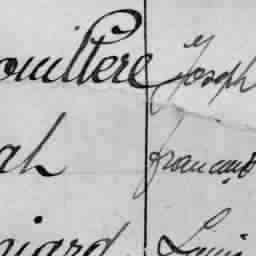 ouillere Joseph
ah francois
niard Louis